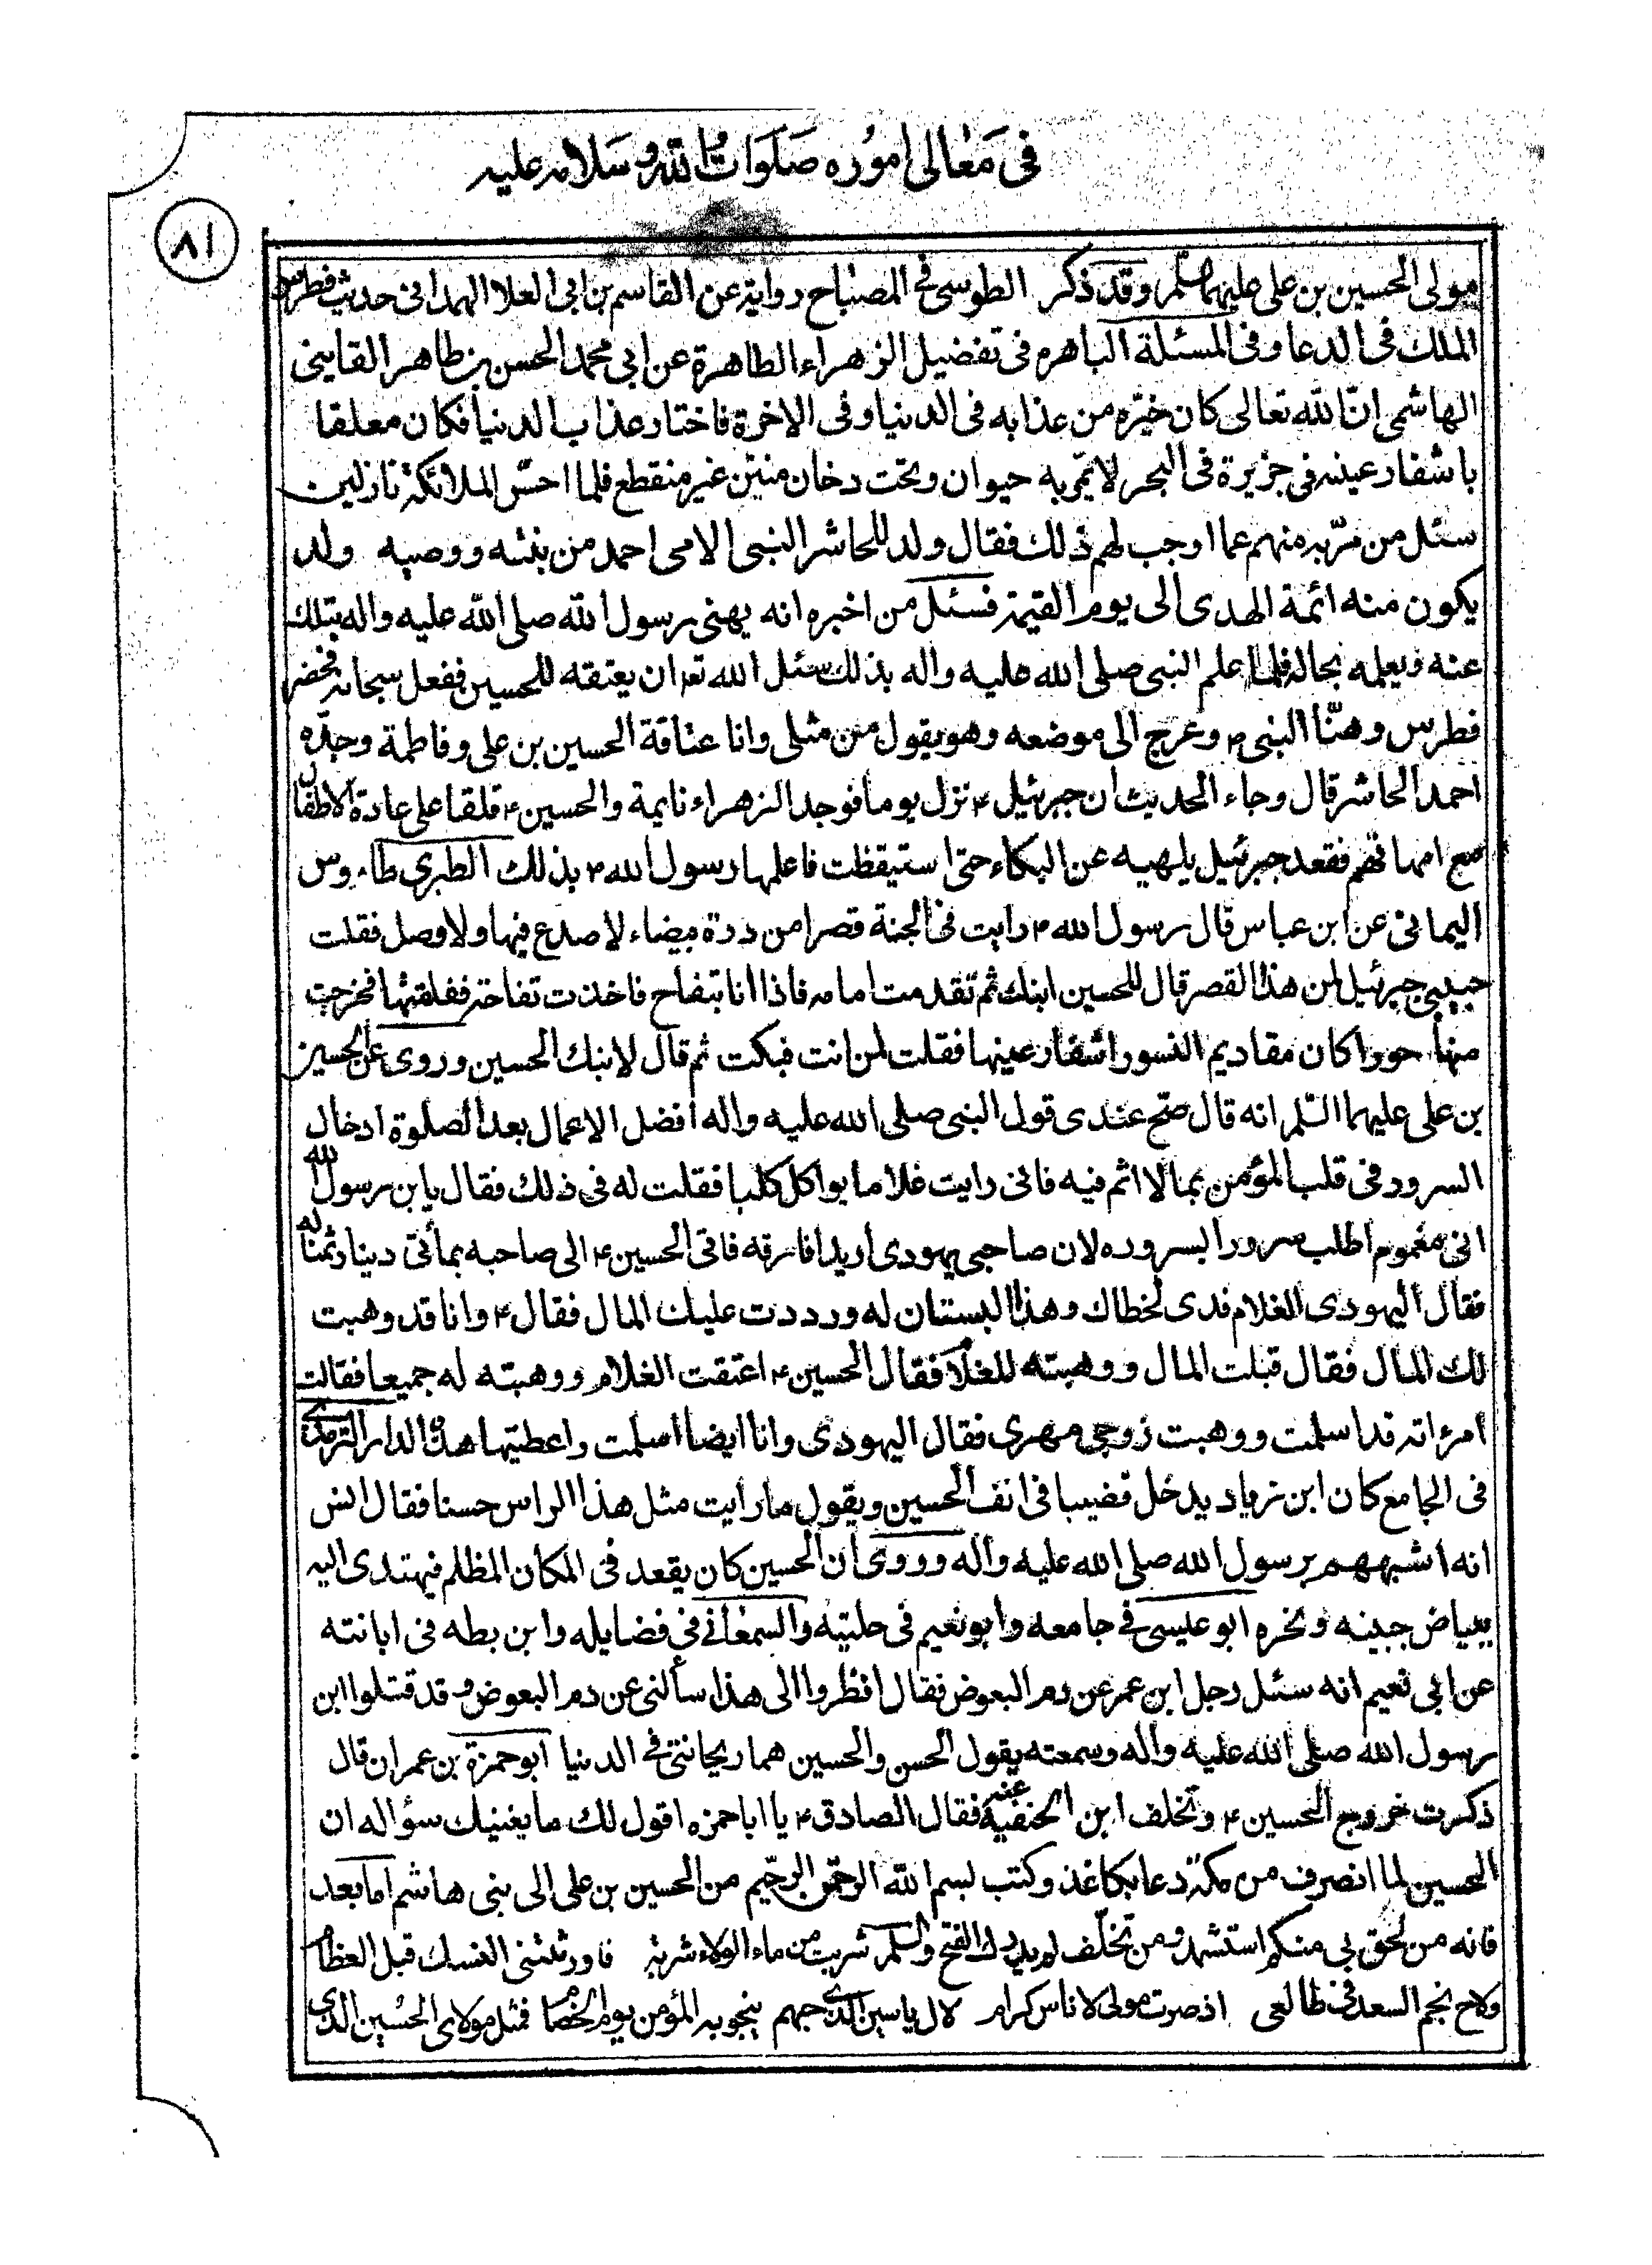 في معالى اموره صلوات الله وسلامه عليه
٨١
مولى الحسين بن على عليهما السلم وقد ذكر الطوسى في المصباح رواية عن القاسم بن ابى العلا الهمدانى حديث فطرس
الملك فى الدعا وفى المسئلة الباهره فى تفضيل الزهراء الطاهرة عن ابي محمد الحسن بن طاهر القاينى
الهاشمى انّ الله تعالى كان خيّره من عذابه فى الدنيا وفى الاخرة فاختار عذاب الدنيا فكان معلقا
باشفار عينيه فى جزيرة فى البحر لا يمّر به حيوان وتحت دخان منتن غير منقطع فلما احسّ الملائكة نازلين
سئل من مرّ به منهم عما اوجب لهم ذلك فقال ولد للحاشر النبى الامى احمد من بنته ووصيه ولد
يكون منه ائمة الهدى الى يوم القيمة فسئل من اخبره انه يهنى برسول الله صلى الله عليه واله بتلك
عنه ويعلمه بحاله فلما علم النبى صلى الله عليه واله بذلك سئل الله تعه ان يعتقه للحسين ففعل سبحانه فحضر
فطرس وهنّا النبى ص وعرج الى موضعه وهو يقول من مثلى وانا عتاقة الحسين بن على وفاطمة وجدّه
احمد الحاشر قال وجاء الحديث ان جبرئيل ع نزل يوما فوجد الزهراء نايمة والحسين ع قلقا على عادة الاطفال
مع امهاتهم فقعد جبرئيل يلهيه عن البكاء حتى استيقظت فاعلمها رسول الله ص بذلك الطبرى طاوس
اليمانى عن ابن عباس قال رسول الله ص رايت فى الجنة قصرا من درة بيضاء لا صدع فيها ولا وصل فقلت
حبيبى جبرئيل لمن هذا القصر قال للحسين ابنك ثم تقدمت امامه فاذا انا بتفاح فاخذت تفاحة ففلقتها فخرجت
منها حورا كان مقاديم النسور اشفار عينها فقلت لمن انت فبكت ثم قال لابنك الحسين وروى عن الحسين
بن على عليهما السّلم انه قال صحّ عندى قول النبى صلى الله عليه واله افضل الاعمال بعد الصلوة ادخال
السرور فى قلب المؤمن بما لا اثم فيه فانى رايت غلاما يواكل كلبا فقلت له فى ذلك فقال يا بن رسول الله
انى مغموم اطلب سرورا بسروره لان صاحبى يهودى اريد افارقه فاتى الحسين ع الى صاحبه بمأتى دينار ثمنا له
فقال اليهودى الغلام فدى لخطاك وهذا البستان له ورددت عليك المال فقال ع وانا قد وهبت
لك المال فقال قبلت المال ووهبته للغلام فقال الحسين ع اعتقت الغلام ووهبته له جميعا فقالت
امرأته قد اسلمت ووهبت زوجى مهرى فقال اليهودى وانا ايضا اسلمت واعطيتها هذه الدار الترمذى
فى الجامع كان ابن زياد يدخل قضيبا فى انف الحسين ويقول ما رايت مثل هذا الراس حسنا فقال انس
انه اشبههم برسول الله صلى الله عليه واله وروى ان الحسين كان يقعد فى المكان المظلم فيهتدى اليه
ببياض جبينه ونحره ابو عيسى في جامعه وابو نعيم فى حليته والسمعانى فى فضايله وابن بطه فى ابانته
عن ابى نعيم انه سئل رجل ابن عمر عن دم البعوض فقال انظروا الى هذا سألنى عن دم البعوض وقد قتلوا ابن
رسول الله صلى الله عليه واله وسمعته يقول الحسن والحسين هما ريحانتى في الدنيا ابو حمزة بن عمران قال
ذكرت خروج الحسين ع وتخلف ابن الحنفيه عنه فقال الصادق ع يا ابا حمزه اقول لك ما يغنيك سؤاله ان
الحسين لما انصرف من مكة دعا بكاغذ وكتب بسم الله الرحمن الرحيم من الحسين بن على الى بنى هاشم اما بعد
فانه من لحق بى منكم استشهد ومن تخلّف لم يدرك الفتح والسلم شربت من ماء الولاء شربة فاورثتنى النسك قبل العظام
ولاح نجم السعد فى طالعى اذ صرت مولى لاناس كرام لال ياسين الذى حبهم ينجو به المؤمن يوم الخصام فمثل مولاى الحسين الذى